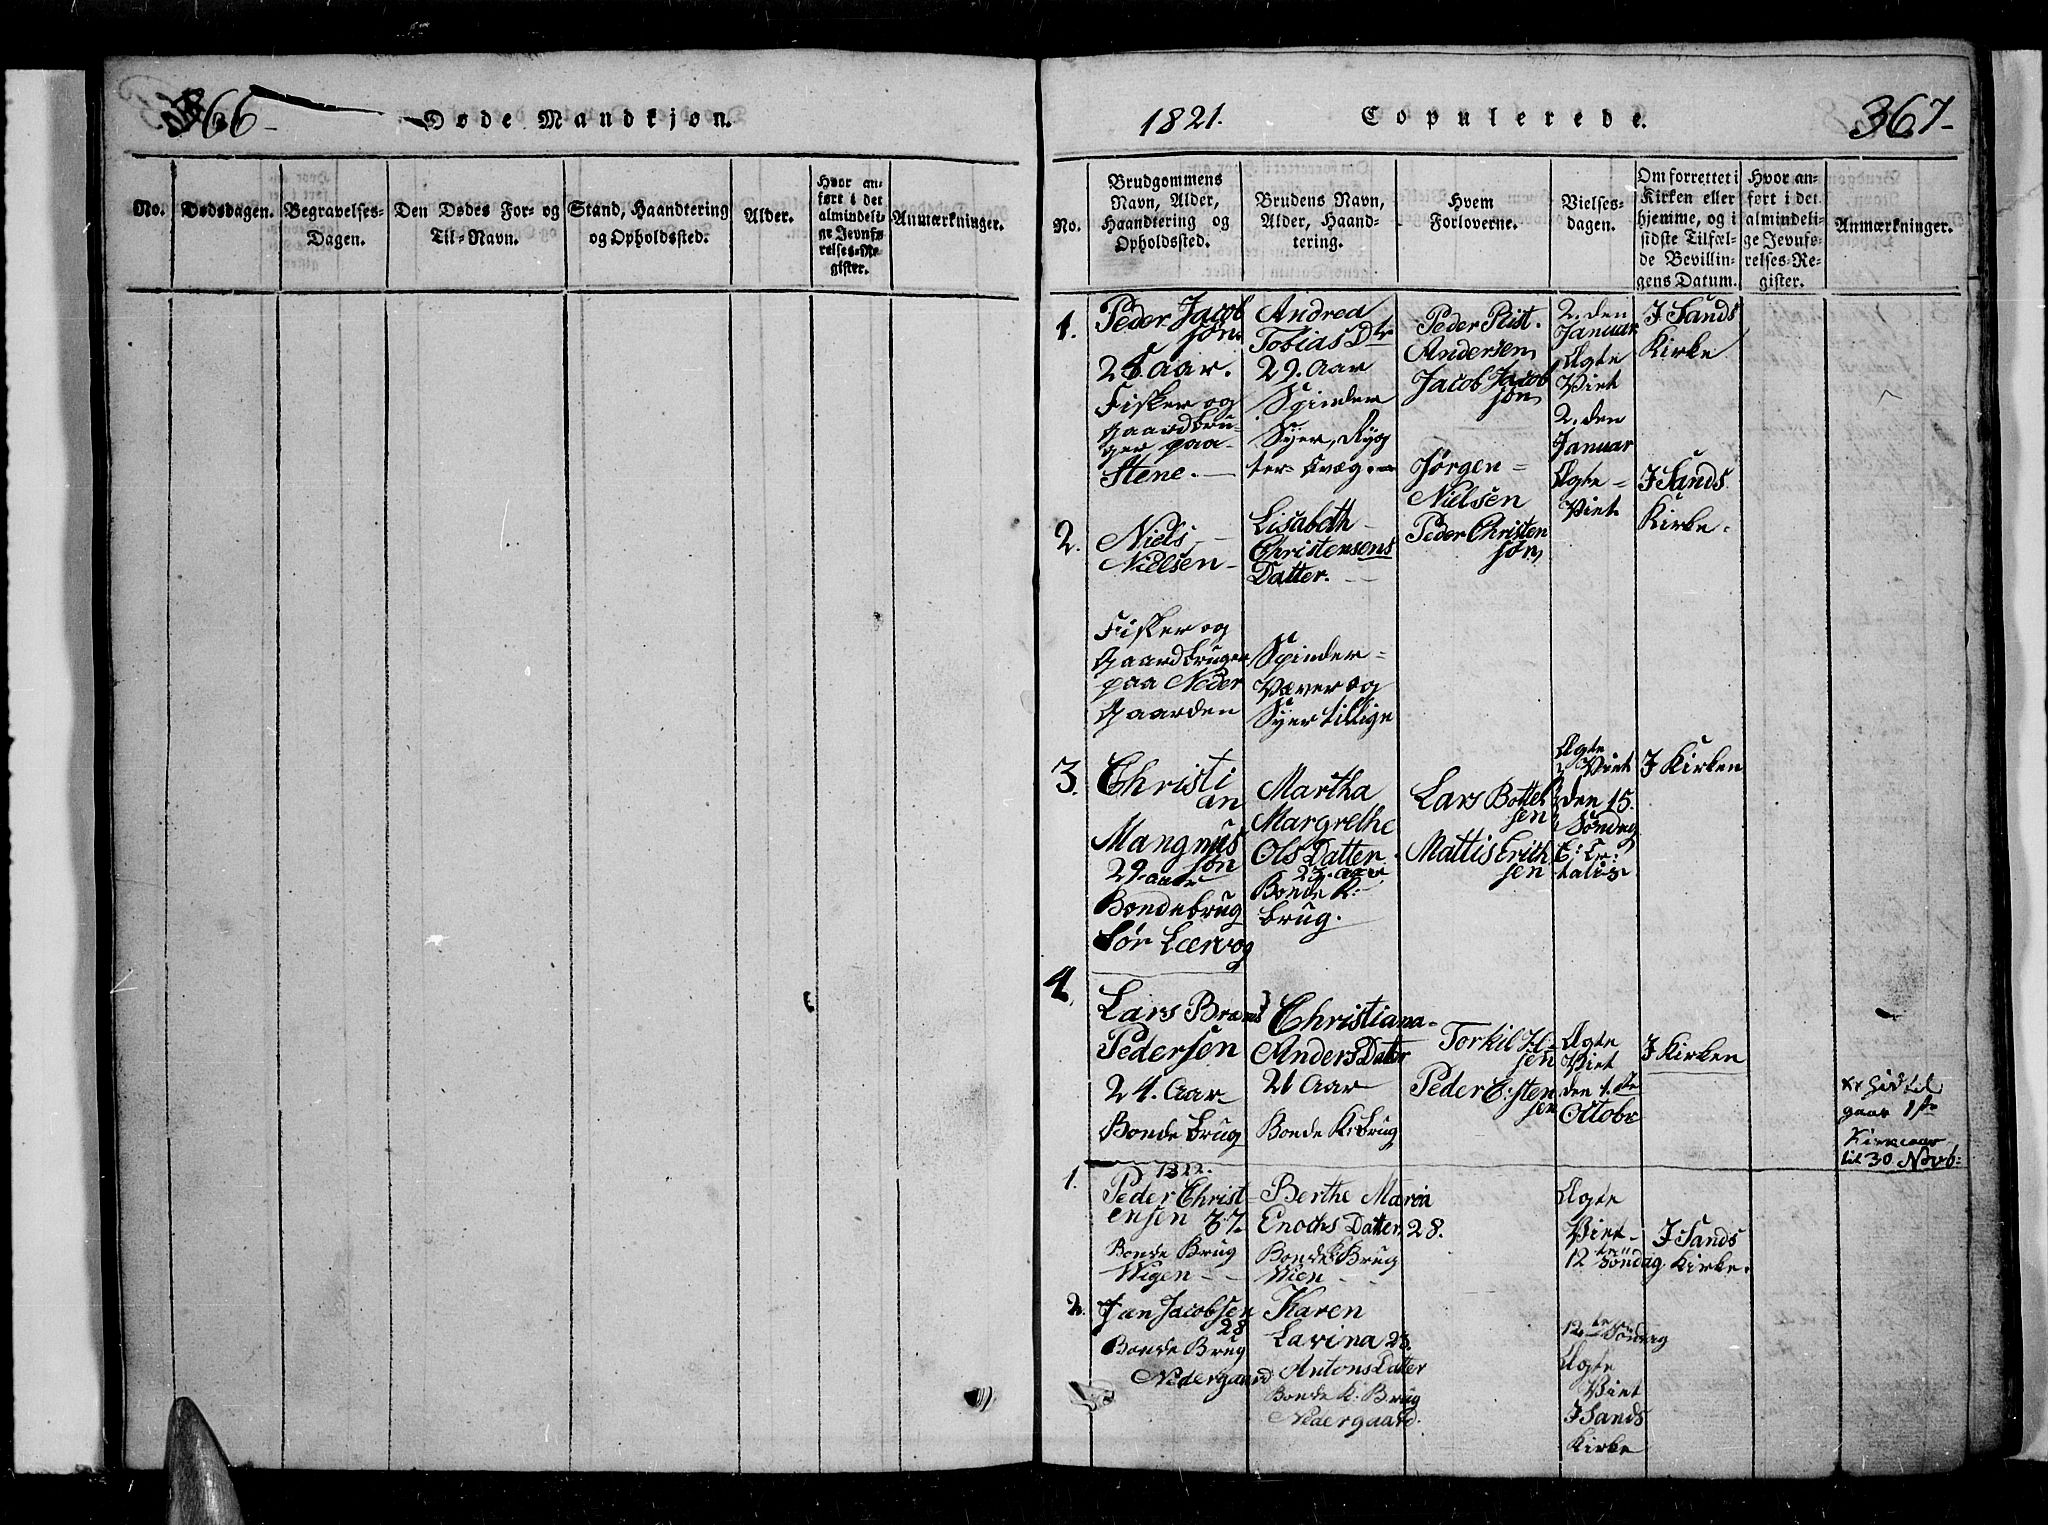 366-
Døde Mandkjøn.
No.
Dødsdagen.
Begravelses-
Dagen.
Den Dødes For- og
Til-Navn.
Stand, Haandtering
og Opholdssted.
Alder.
Hvor an-
ført i det
almindeli-
ge Jevnfø-
relses-Re-
gister.
Anmærkninger.
1821.
Copulerede.
367-
No.
Brudgommens
Navn, Alder,
Haandtering og
Opholdssted.
Brudens Navn,
Alder, Haand-
tering.
Hvem
Forloverne.
Vielses-
dagen.
Om forrettet i
Kirken eller
hjemme, og i
sidste Tilfæl-
de Bevillin-
gens Datum.
Hvor an-
ført i det
almindeli-
ge Jevnfø-
relses-Re-
gister.
Anmærkninger.
1.
Peder Jacob
søn
28 Aar.
Fisker og
Gaardbru-
ger paa
Stene.
Andrea
Tobias Dtr
29. Aar
Spinder
Syer, Røg
ter Kvæg
Peder Rist.
Andersen
Jacob Jacob
søn
2. den
Januar
Ægte
Viet
I Sands
Kirke
2.
Niels
Nielsen
Fisker og
Gaardbruger
paa Neder
Gaarden
Lisabeth
Christensens
Datter.
Spinder
Væver og
Syer tillige
Jørgen
Nielsen
Peder Christen
søn
2. den
Januar
Ægte
Viet
I Sands
Kirke.
3.
Christi
an
Mangnus
søn
29. aar
Bondebrug
Sør Leervog
Martha
Margrethe
Ols Datter
23. aar
Bonde K.
brug.
Lars Bottel
sen
Mattis Erich
sen
Ægte
Viet
den 15.
Søndag
I Kirken
4.
Lars
Pedersen
24. Aar
Bonde brug
Christiana
Anders Dater
21 Aar
Bonde K. brug
Torkil
sen
Peder
Ægte
Viet
den 1.ste
Octobr
I Kirken
gaar 1ste
Kirkeaar
til 30 Novb:
1822.
1.
Peder Christ
ensen 37.
Bonde Brug
Wigen
Berthe Maria
Enochs Datter 28.
Bonde K Brug
Wien
Ægte
Viet
12te Söndag
I Sands
Kirke.
2.
Jan Jacobsen
28
Bonde Brug
Nedergaard
Karen
Lavina 23.
Antons Dater
Bonde K. Brug
Nedergaard.
12te Söndag
Ægte
Viet
I Sands
Kirke